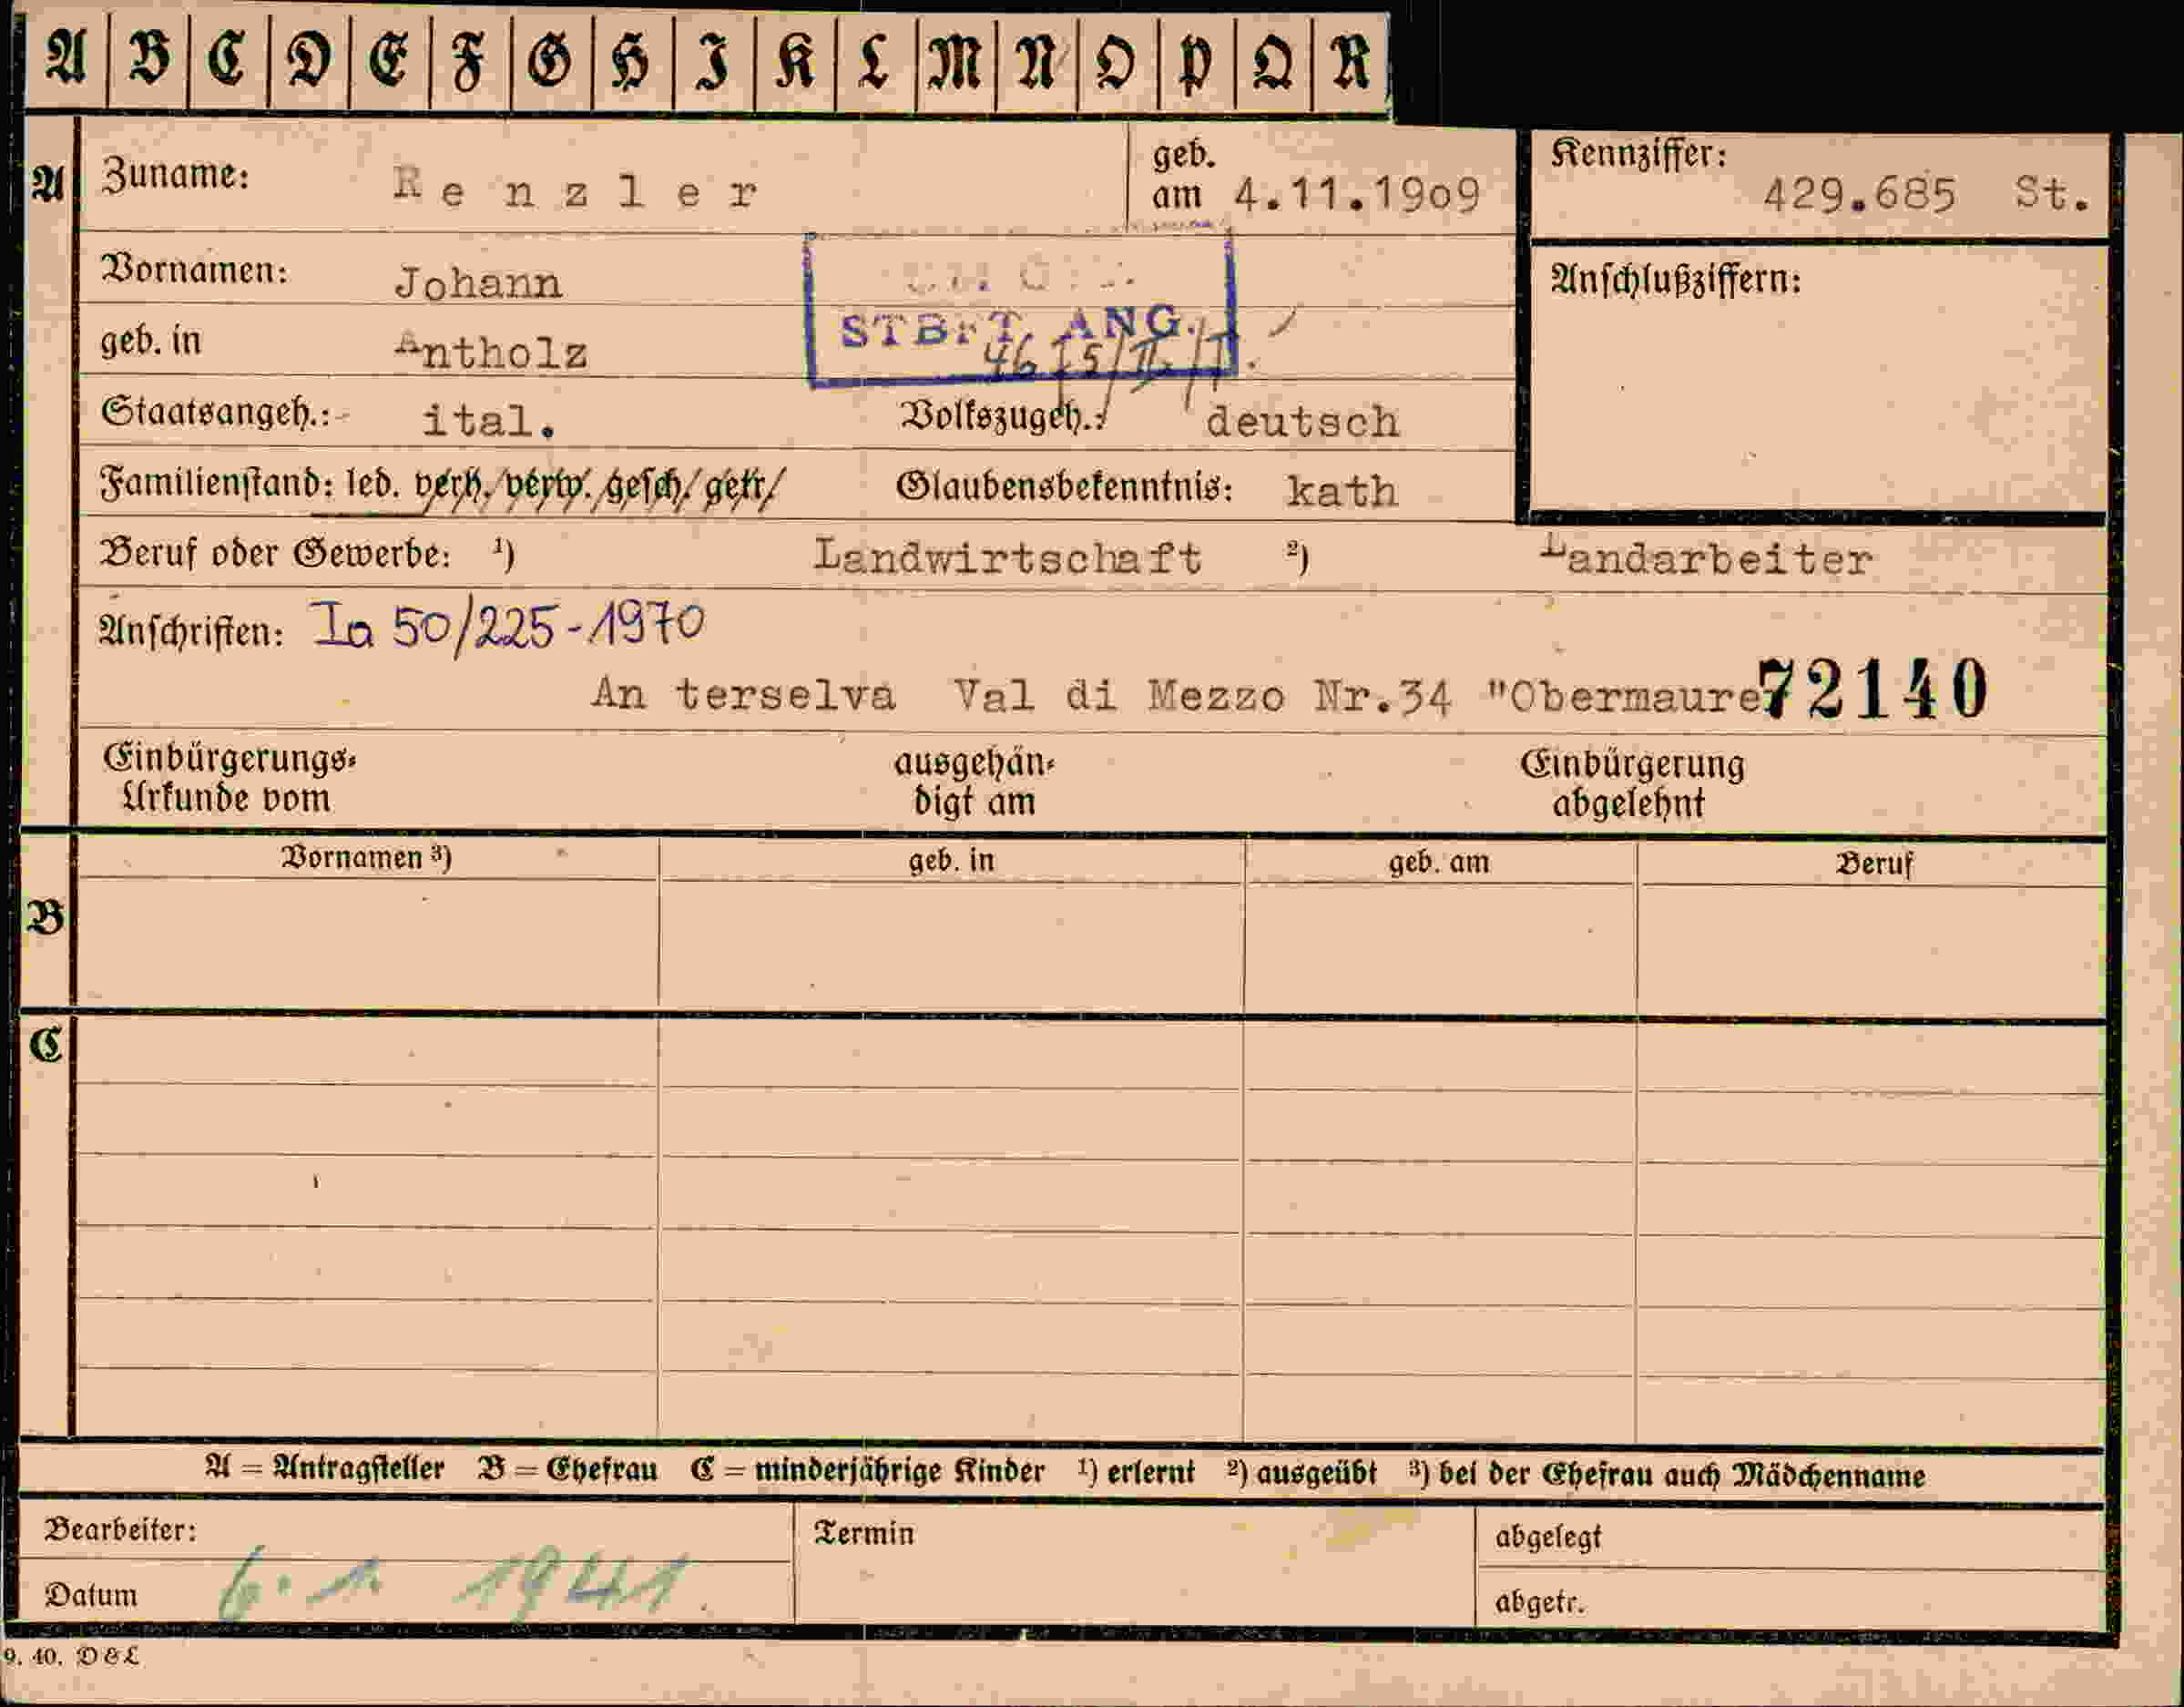 A B C D E F G H I K L M N O P Q R
A Zuname: Renzler geb. am 4.11.1909 Kennziffer: 429.685 St.
Vornamen: Johann Anschlußziffern:
STBrT. ANG.
geb. in Antholz
Staatsangeh.: ital. Volkszugeh.: deutsch
Familienstand: led. verh. verw. gesch. getr. Glaubensbekenntnis: kath
Beruf oder Gewerbe: 1) Landwirtschaft 2) Landarbeiter
Anschriften: Ia 50/225-1970
An terselva Val di Mezzo Nr.34 "Obermaure 72140
Einbürgerungs-
Urkunde vom
ausgehän-
digt am
Einbürgerung
abgelehnt
Vornamen 3) geb. in geb. am Beruf
B
C
A = Antragsteller B = Ehefrau C = minderjährige Kinder 1) erlernt 2) ausgeübt 3) bei der Ehefrau auch Mädchenname
Bearbeiter: Termin abgelegt
Datum 6. 1. 1941. abgetr.
9. 40. D & L